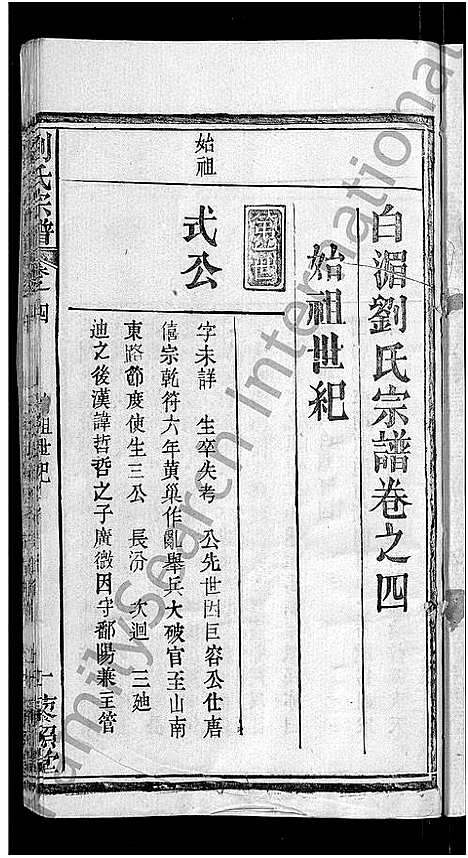 白湄劉氏宗譜卷之四
始祖世紀
第一世
始祖
式公
字未詳 生卒失考 公先世因巨容公仕唐
僖宗乾符六年黄巢作亂舉兵大破官至山南
東路節度使生三公 長汾 次迴 三廸
迪之後漢諱哲哲之子廣微因守鄱陽兼主管
劉氏宗譜
卷之四
始祖世紀
一
藜照堂
FamilySearch International